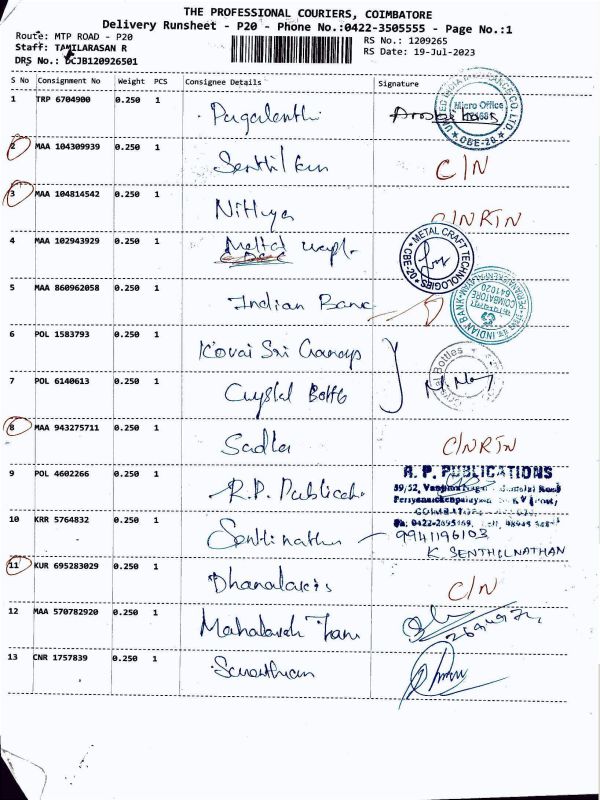 THE PROFESSIONAL COURIERS, COIMBATORE
Delivery Runsheet - P20 - Phone No.:0422-3505555 - Page No.:1
Route: MTP ROAD - P20
RS No.: 1209265
Staff: TAMILARASAN R
RS Date: 19-Jul-2023
DRS No.: DCJB120926501
S No Consignment No Weight PCS Consignee Details Signature
1 TRP 6704900 0.250 1 Pugalenthi
UNITED INDIA INSURANCE CO. LTD.
Micro Office
CBE-20
2 MAA 104309939 0.250 1 Senthil C/N
3 MAA 104814542 0.250 1 Nithya C/NRTN
4 MAA 102943929 0.250 1 Metal
METAL CRAFT TECHNOLOGIES
CBE-20
5 MAA 860962058 0.250 1 Indian Bank
INDIAN BANK
COIMBATORE
641020
6 POL 1583793 0.250 1 Kovai Sri
7 POL 6140613 0.250 1 Crystal Bottle
Bottles
8 MAA 943275711 0.250 1 C/NRTN
9 POL 4602266 0.250 1 R.P. Publicatio
R. P. PUBLICATIONS
39/52,
Ph: 0422-2695469,
10 KRR 5764832 0.250 1 Senthinathn 9941196103
K. SENTHILNATHAN
11 KUR 695283029 0.250 1 C/N
12 MAA 570782920 0.250 1
13 CNR 1757839 0.250 1